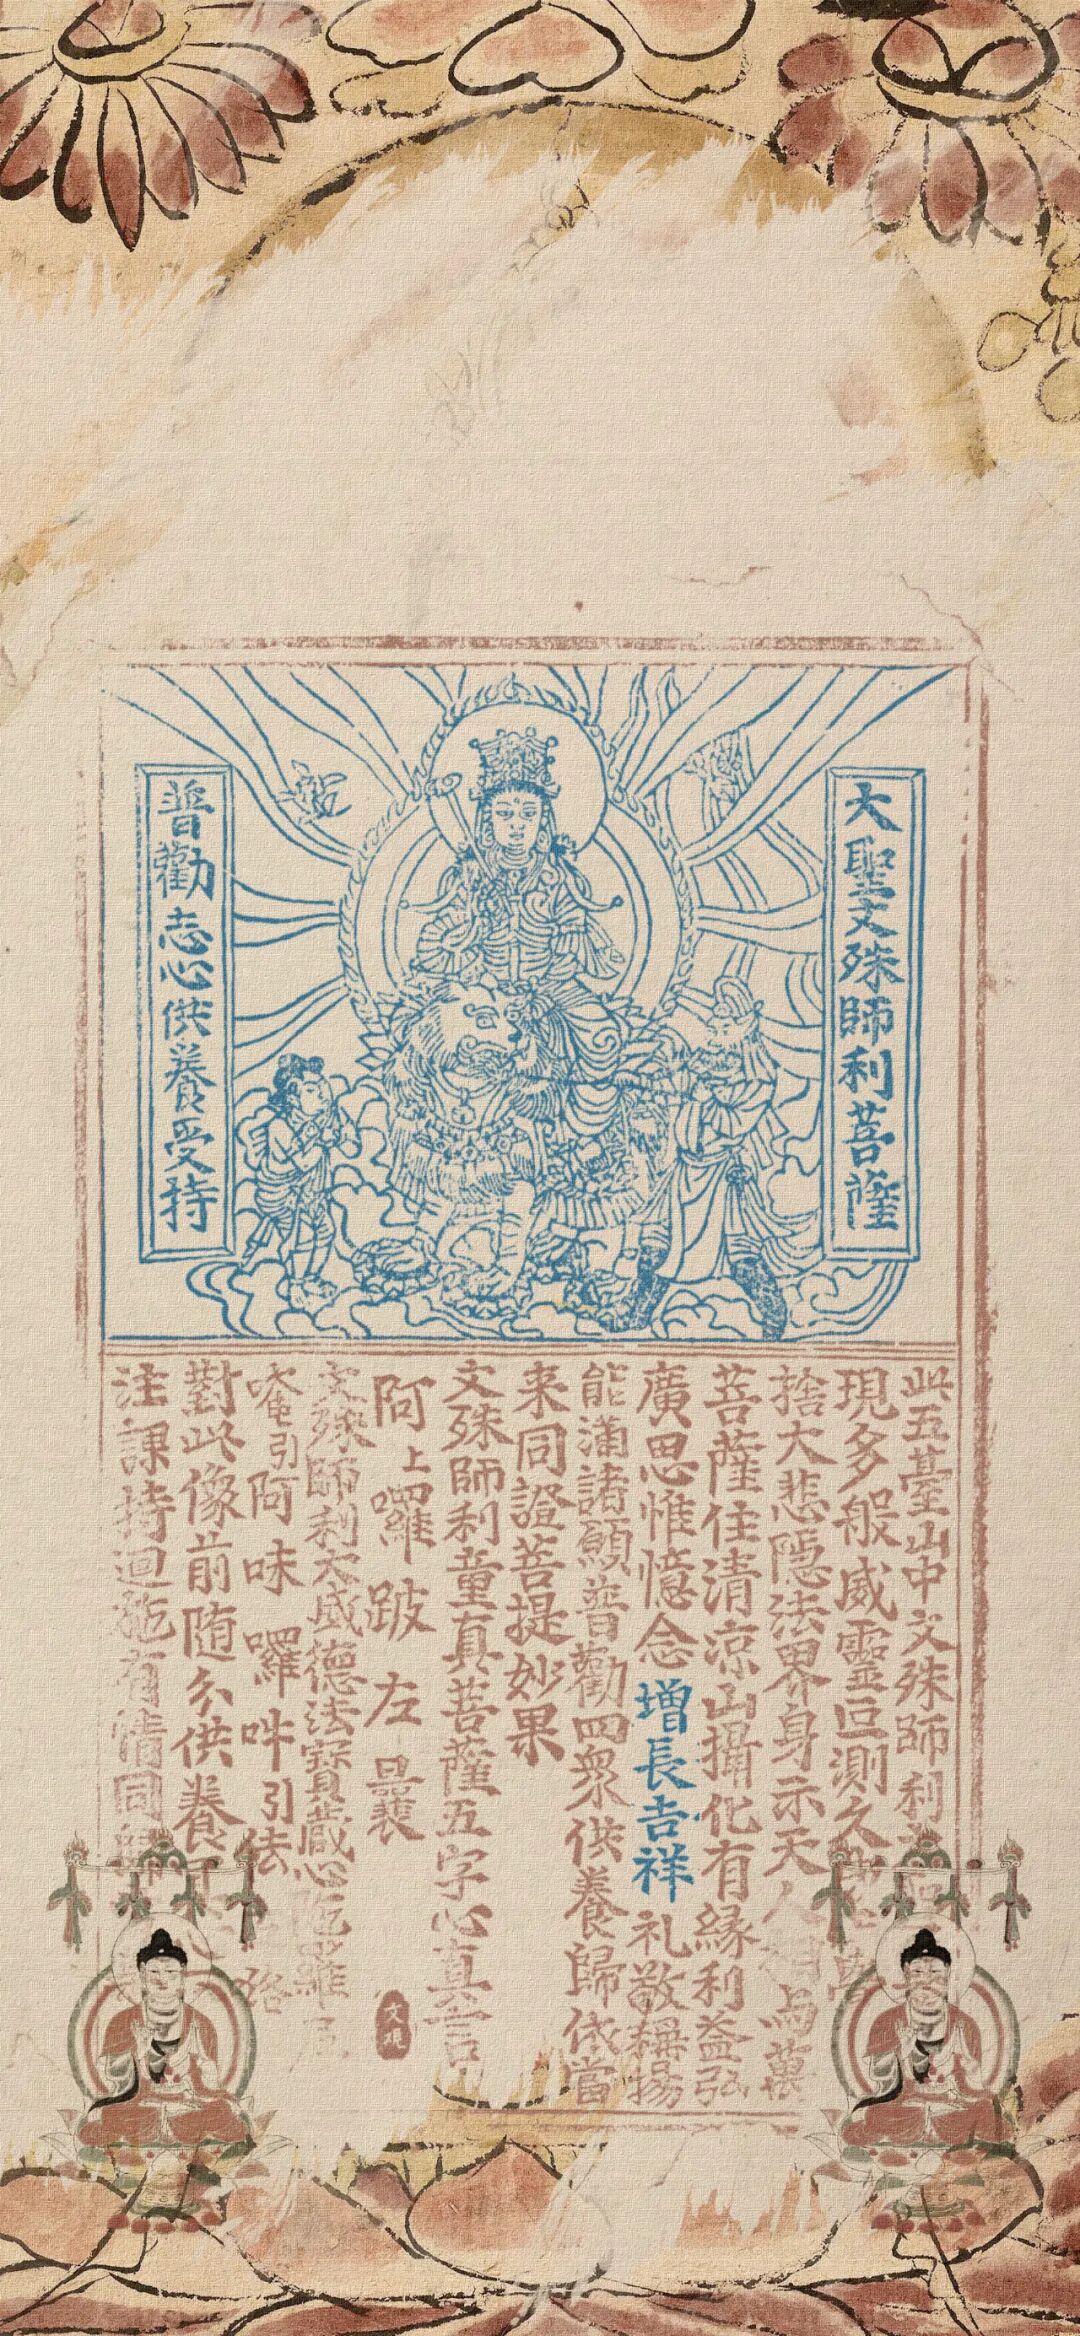 大聖文殊師利菩薩
普勸志心供養受持
此五臺山中文殊師利
現多般威靈叵測久
捨大悲隱法界身示天人 為萬
菩薩住清涼山攝化有緣利益弘
廣思惟憶念增長吉祥礼敬稱揚
能滿諸願普勸四衆供養歸依當
来同證菩提妙果
文殊師利童真菩薩五字心真言
阿上囉跛左曩
文殊師利大威德法寶藏心陀羅尼
唵引阿味囉吽引佉
對此像前随分供養
注課持迴施有情同